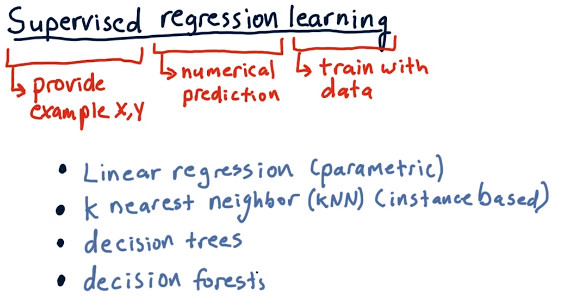 Supervised regression learning
↳ provide example X,Y
↳ numerical prediction
↳ train with data
• Linear regression (parametric)
• K nearest neighbor (KNN) (instance based)
• decision trees
• decision forests